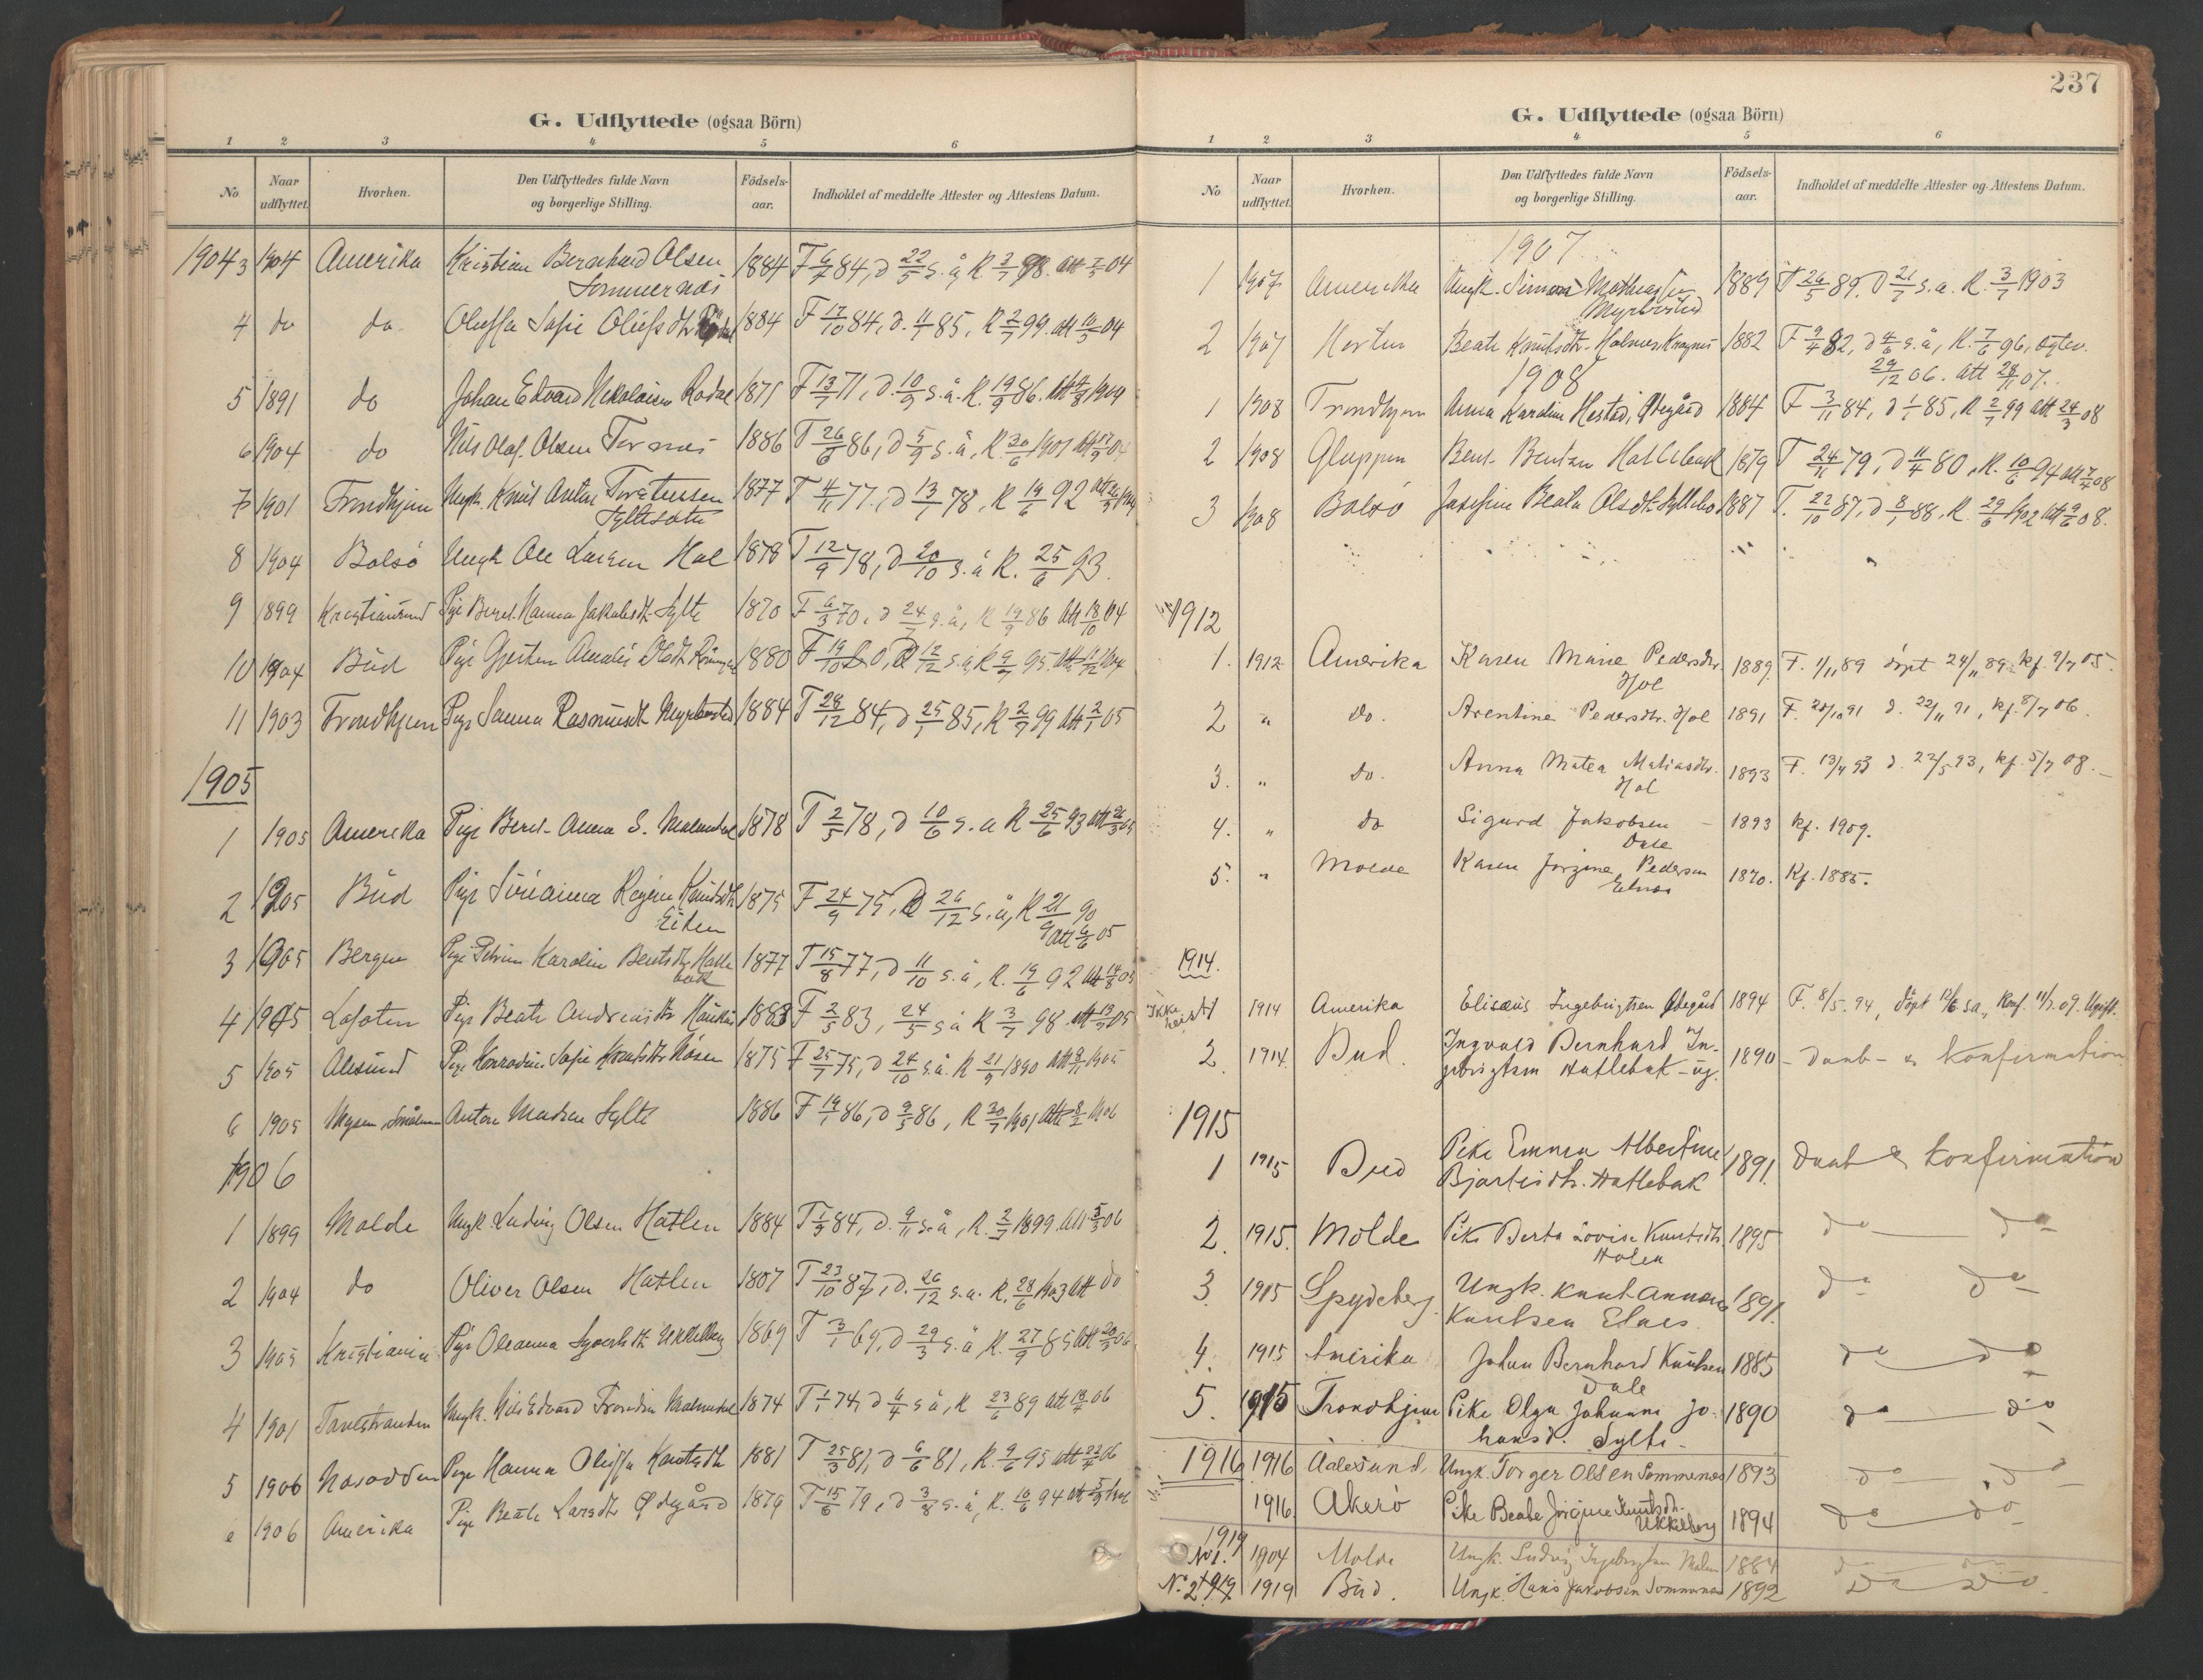 G. Udflyttede (ogsaa Börn)
1 2 3 4 5 6
No Naar udflyttet. Hvorhen. Den Udflyttedes fulde Navn og borgerlige Stilling. Födsels-aar. Indholdet af meddelte Attester og Attestens Datum.
1904 3 1904 Amerika Kristian Bernhard Olsen 1884 F 6/7 84, d 22/5 s.å K 3/7 98. att 2/5 04
Sommernæs
4 do do Oluffa Sofie Olufsdtr 1884 F 17/10 84, d. 85, K 2/7 99. att 04
5 1891 do Johan Edvard Nikolaisen Rødal 1871 F 13/7 71, d. 10/9 s.å. K. 19/9 86. Att 1904
6 1904 do Nils Olaf Olsen Tornes 1886 F 26/6 86, d 5/9 s.å, K. 30/6 1901
7 1901 Trondhjem Ungk. Knut Anton Torstensen 1877 F 4/11 77, d 13/1 78, K 19/6 92
Syltesætr
8 1904 Bolsö Ungk Ole Larsen Hol 1878 F 12/9 78, d 20/10 s.å K. 25/6 93.
9 1899 Kristiansund Pige Beret Hanna Jakobsdtr Sylte 1870 F 6/3 70, d 24/7 s.å, K 19/9 86 Att 18/10 04
10 1904 Bud Pige Gjertine Amalie Olsdtr 1880 F 19/10 80, d 12/12 s.å, K 9/6 95. Att 04
11 1903 Trondhjem Pige Sanna Rasmusdtr Myrbostad 1884 F 28/12 84, d 25/1 85, K 2/7 99 Att 05
1905
1 1905 Amerika Pige Beret Anna S. Malmedal 1878 F 2/5 78, d 10/6 s.a K 25/6 93 Att
2 1905 Bud Pige Regine Knutsdtr 1875 F 24/9 75, d 26/12 s.å, K 21/9 90
Eiken Att 6/6 05
3 1905 Bergen Pige Petrine Karoline Bentsdtr Hatle 1877 F 15/8 77, d 11/10 s.å, K. 19/6 92 Att
bak
4 1905 Lofoten Pige Beate Andreasdtr 1883 F 2/5 83, 24/5 s å K 3/7 98 att 05
5 1905 Alesund Pige Konradine Sofie Knutsdtr 1875 F 25/7 75, d 24/10 s.å. K 21/9 1890 Att 1905
6 1905 Mysen, Smålenene Anton Madsen Sylte 1886 F 19/1 86, d 9/5 86, K 30/7 1901 Att 8/2 1906
1906
1 1899 Molde Ungk. Ludvig Olsen Hatlen 1884 F 1/9 84, d. 9/11 s.å, K. 2/7 1899. Att 5/3 06
2 1904 do Oliver Olsen Hatlen 1887 F 23/10 87, d. 26/12 s.a. K. 28/6 1903 Att do
3 1905 Kristiania Pige Oleanna Syverts dtr Ukkelberg 1869 F 3/1 69, d 29/3 s.å, K. 27/9 85 Att 06
4 1901 Ungk. Nils Edvard Trondsen Malmedal 1874 F 1/1 74, d 6/4 s å, K 23/6 89 Att 06
5 1906 Næsodden Pige Hanna Oluffa Knutsdtr 1881 F 25/3 81, d 6/6 81, K. 9/6 95 att 06
6 1906 Amerika Pige Beate Larsdtr Ødegård 1879 F 15/6 79, d 3/8 s.å, K. 10/6 94 att
237
G. Udflyttede (ogsaa Börn)
1 2 3 4 5 6
No Naar udflyttet. Hvorhen. Den Udflyttedes fulde Navn og borgerlige Stilling. Födsels-aar. Indholdet af meddelte Attester og Attestens Datum.
1907
1 1907 Amerika Ungk. Simon Mathiassen 1889 F 26/5 89. D 21/7 s.a. K. 3/7 1903
Myrbostad
2 1907 Horten Beate Knutsdtr. 1882 F 9/4 82, d 4/6 s.å, K. 7/6 96,
29/12 06. att 28/11 07.
1908
1 1908 Trondhjem Anna Karoline Hestad, Ødegård 1884 F 3/11 84, d 1/1 85, K 2/7 99 Att 24/3 08
2 1908 Beret Bentsen Hatlebak 1879 F 24/11 79, d 11/4 80, K. 10/6 94 Att 7/4 08
3 1908 Bolsö Josefine Beata Olsdtr Syltebø 1887 F. 22/10 87, d 8/1 88, K. 29/6 1902 Att 9/6 08.
1912
1. 1912 Amerika Karen Marie Pedersdtr. 1889. F. 1/11 89 döpt 24/11 89 kf. 9/7 05.
Hol
2 " do. Arentine Pedersdtr. Hol 1891 F. 20/10 91 d. 22/11 91, kf. 8/7 06.
3. " do. Anna Matea Matiasdtr. 1893 F. 13/4 93 d. 22/5 93, kf. 5/7 08.
Hol
4. " do Sigurd Jakobsen 1893 kf. 1909.
Dale
5. " Molde Karen Jörgine Pedersen 1870. Kf. 1885.
Elnes
1914.
Ikke reist 1 1914 Amerika Elisæus Ingebrigtsen Ødegård 1894 F. 8/5. 94, döpt 12/6 s.a., Konf. 11/7.09. Ugift.
2. 1914. Bud. Ingvald Bernhard In- 1890 - Daab- & Konfirmation
gebrigtsen Hatlebak - ug.
1915
1 1915 Bud Pike Emma Albertine 1891 Daab & Konfirmation
Bjartesdtr. Hatlebak
2. 1915. Molde Pike Berta Lovise Knutsdtr. 1895 do do
Holen
3. 1915 Spydeberg Ungk. Knut 1891. do do
Knutsen Elnes.
4. 1915 Amerika Johan Bernhard Knutsen 1885 do do
Dale
5. 1915 Trondhjem Pike Olga Johanne Jo- 1890 do do
hansd. Sylte
1916 1916 Aalesund. Ungk. Torger Olsen Sommernes 1893 do do
1916 Akerö Pike Beate Jörgine Knutsdtr. 1894 do do
Ukkelberg
1919
No 1. 1904 Molde Ungk. Ludvig Ingebrigtsen Malme 1884 do do
No. 2 1919 1919 Bud. Ungk. Hans Jakobsen Sommernes 1892 do do